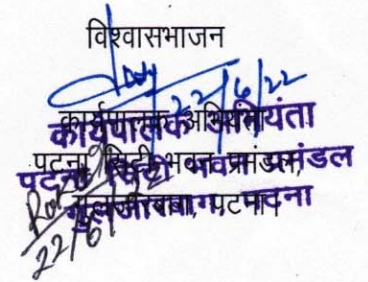 विश्वासभाजन
22/6/22
कार्यपालक अभियंता
पटना सिटी भवन प्रमंडल,
गुलजारबाग, पटना।
कार्यपालक अभियंता
पटना सिटी भवन प्रमंडल
गुलजारबाग, पटना
22/6/22